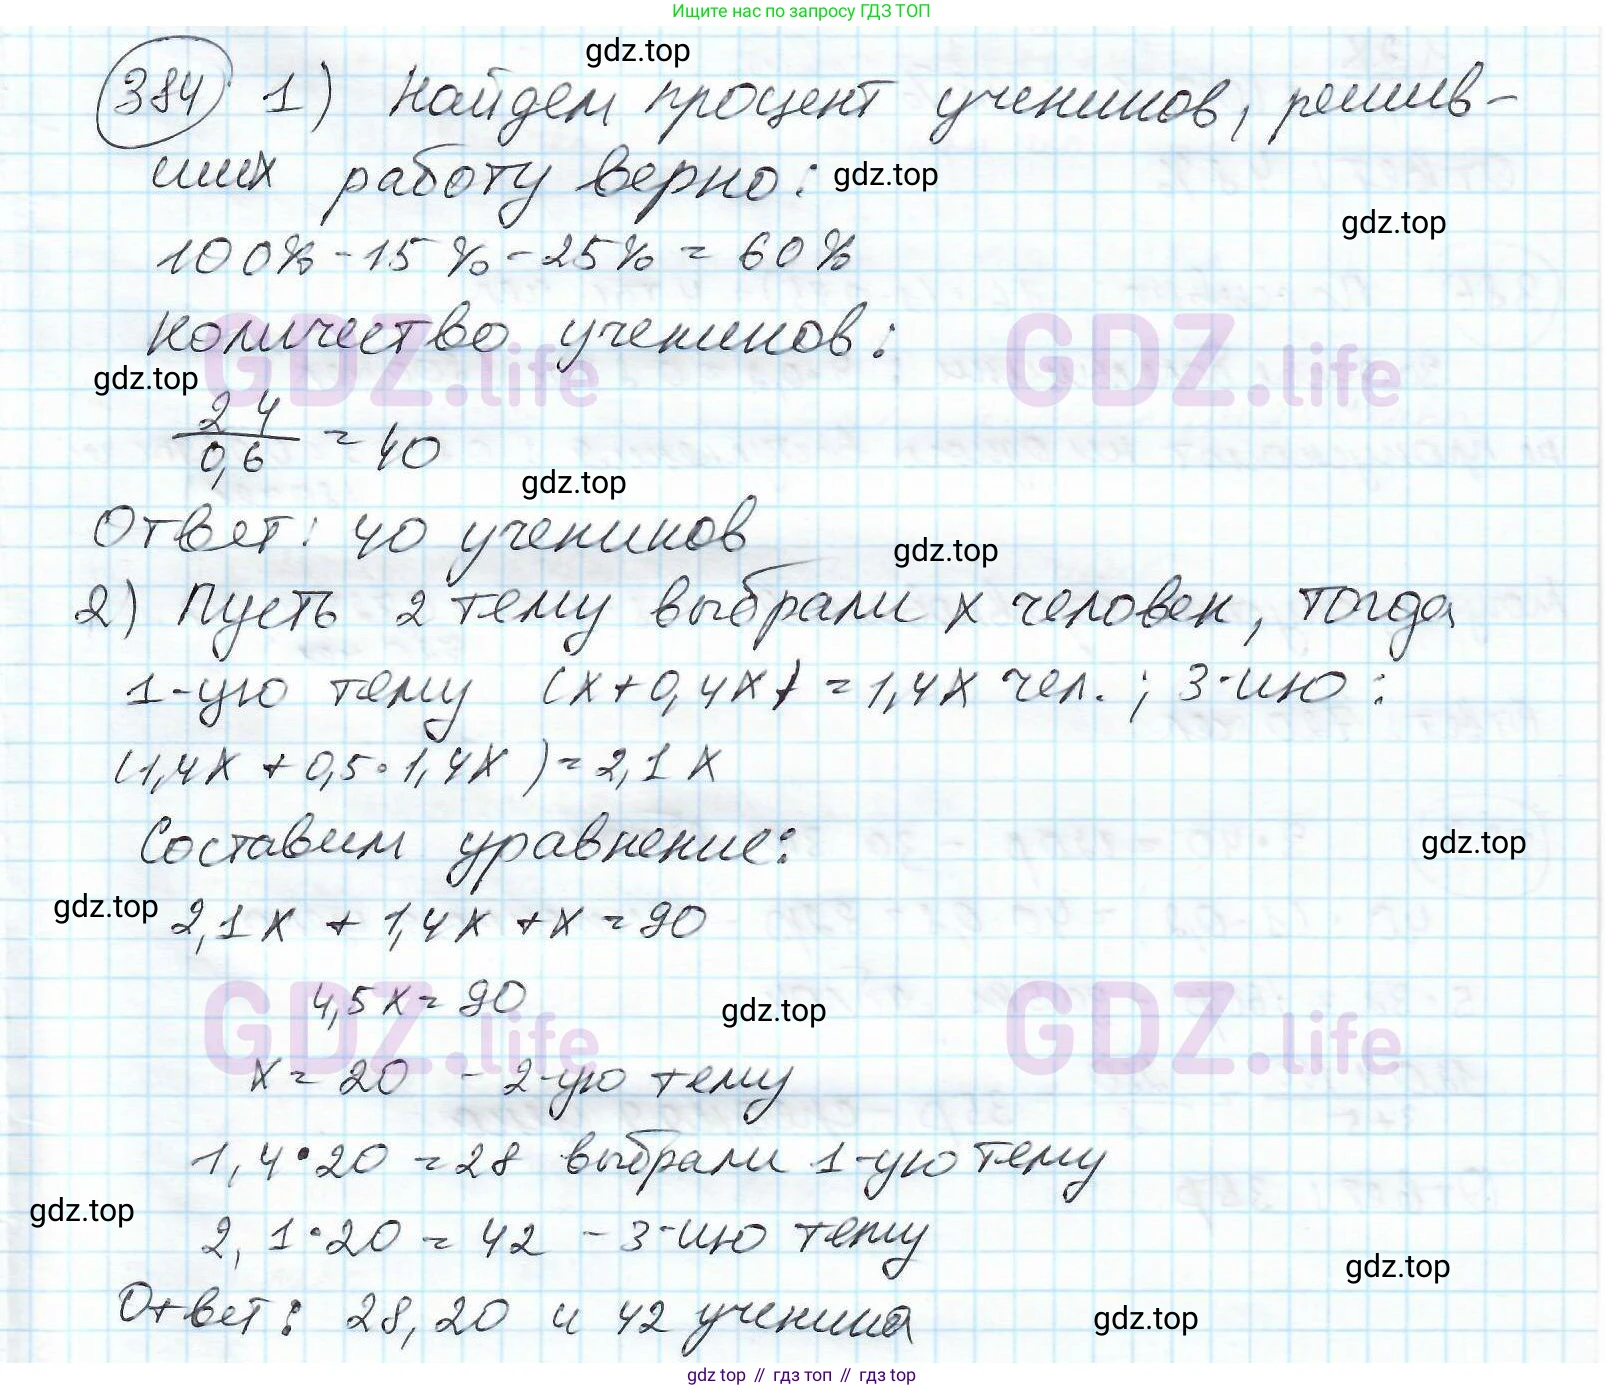 Ищите нас по запросу ГДЗ ТОП
gdz.top
384 1) Найдем процент учеников, решив-
ших работу верно: gdz.top
gdz.top
100% - 15% - 25% = 60%
Количество учеников:
GDZ.life GDZ.life
gdz.top
24/0,6 = 40
gdz.top
Ответ: 40 учеников
gdz.top
2) Пусть 2 тему выбрали x человек, тогда
1-ую тему (x+0,4x) = 1,4x чел.; 3-ию:
(1,4x + 0,5·1,4x) = 2,1x
Составим уравнение:
gdz.top
gdz.top
2,1x + 1,4x + x = 90
4,5x = 90
gdz.top
GDZ.life GDZ.life
x = 20 - 2-ую тему
1,4·20 = 28 выбрали 1-ую тему
gdz.top
2,1·20 = 42 - 3-ию тему
gdz.top
Ответ: 28, 20 и 42 ученика
gdz.top
gdz top // гдз топ // гдз top